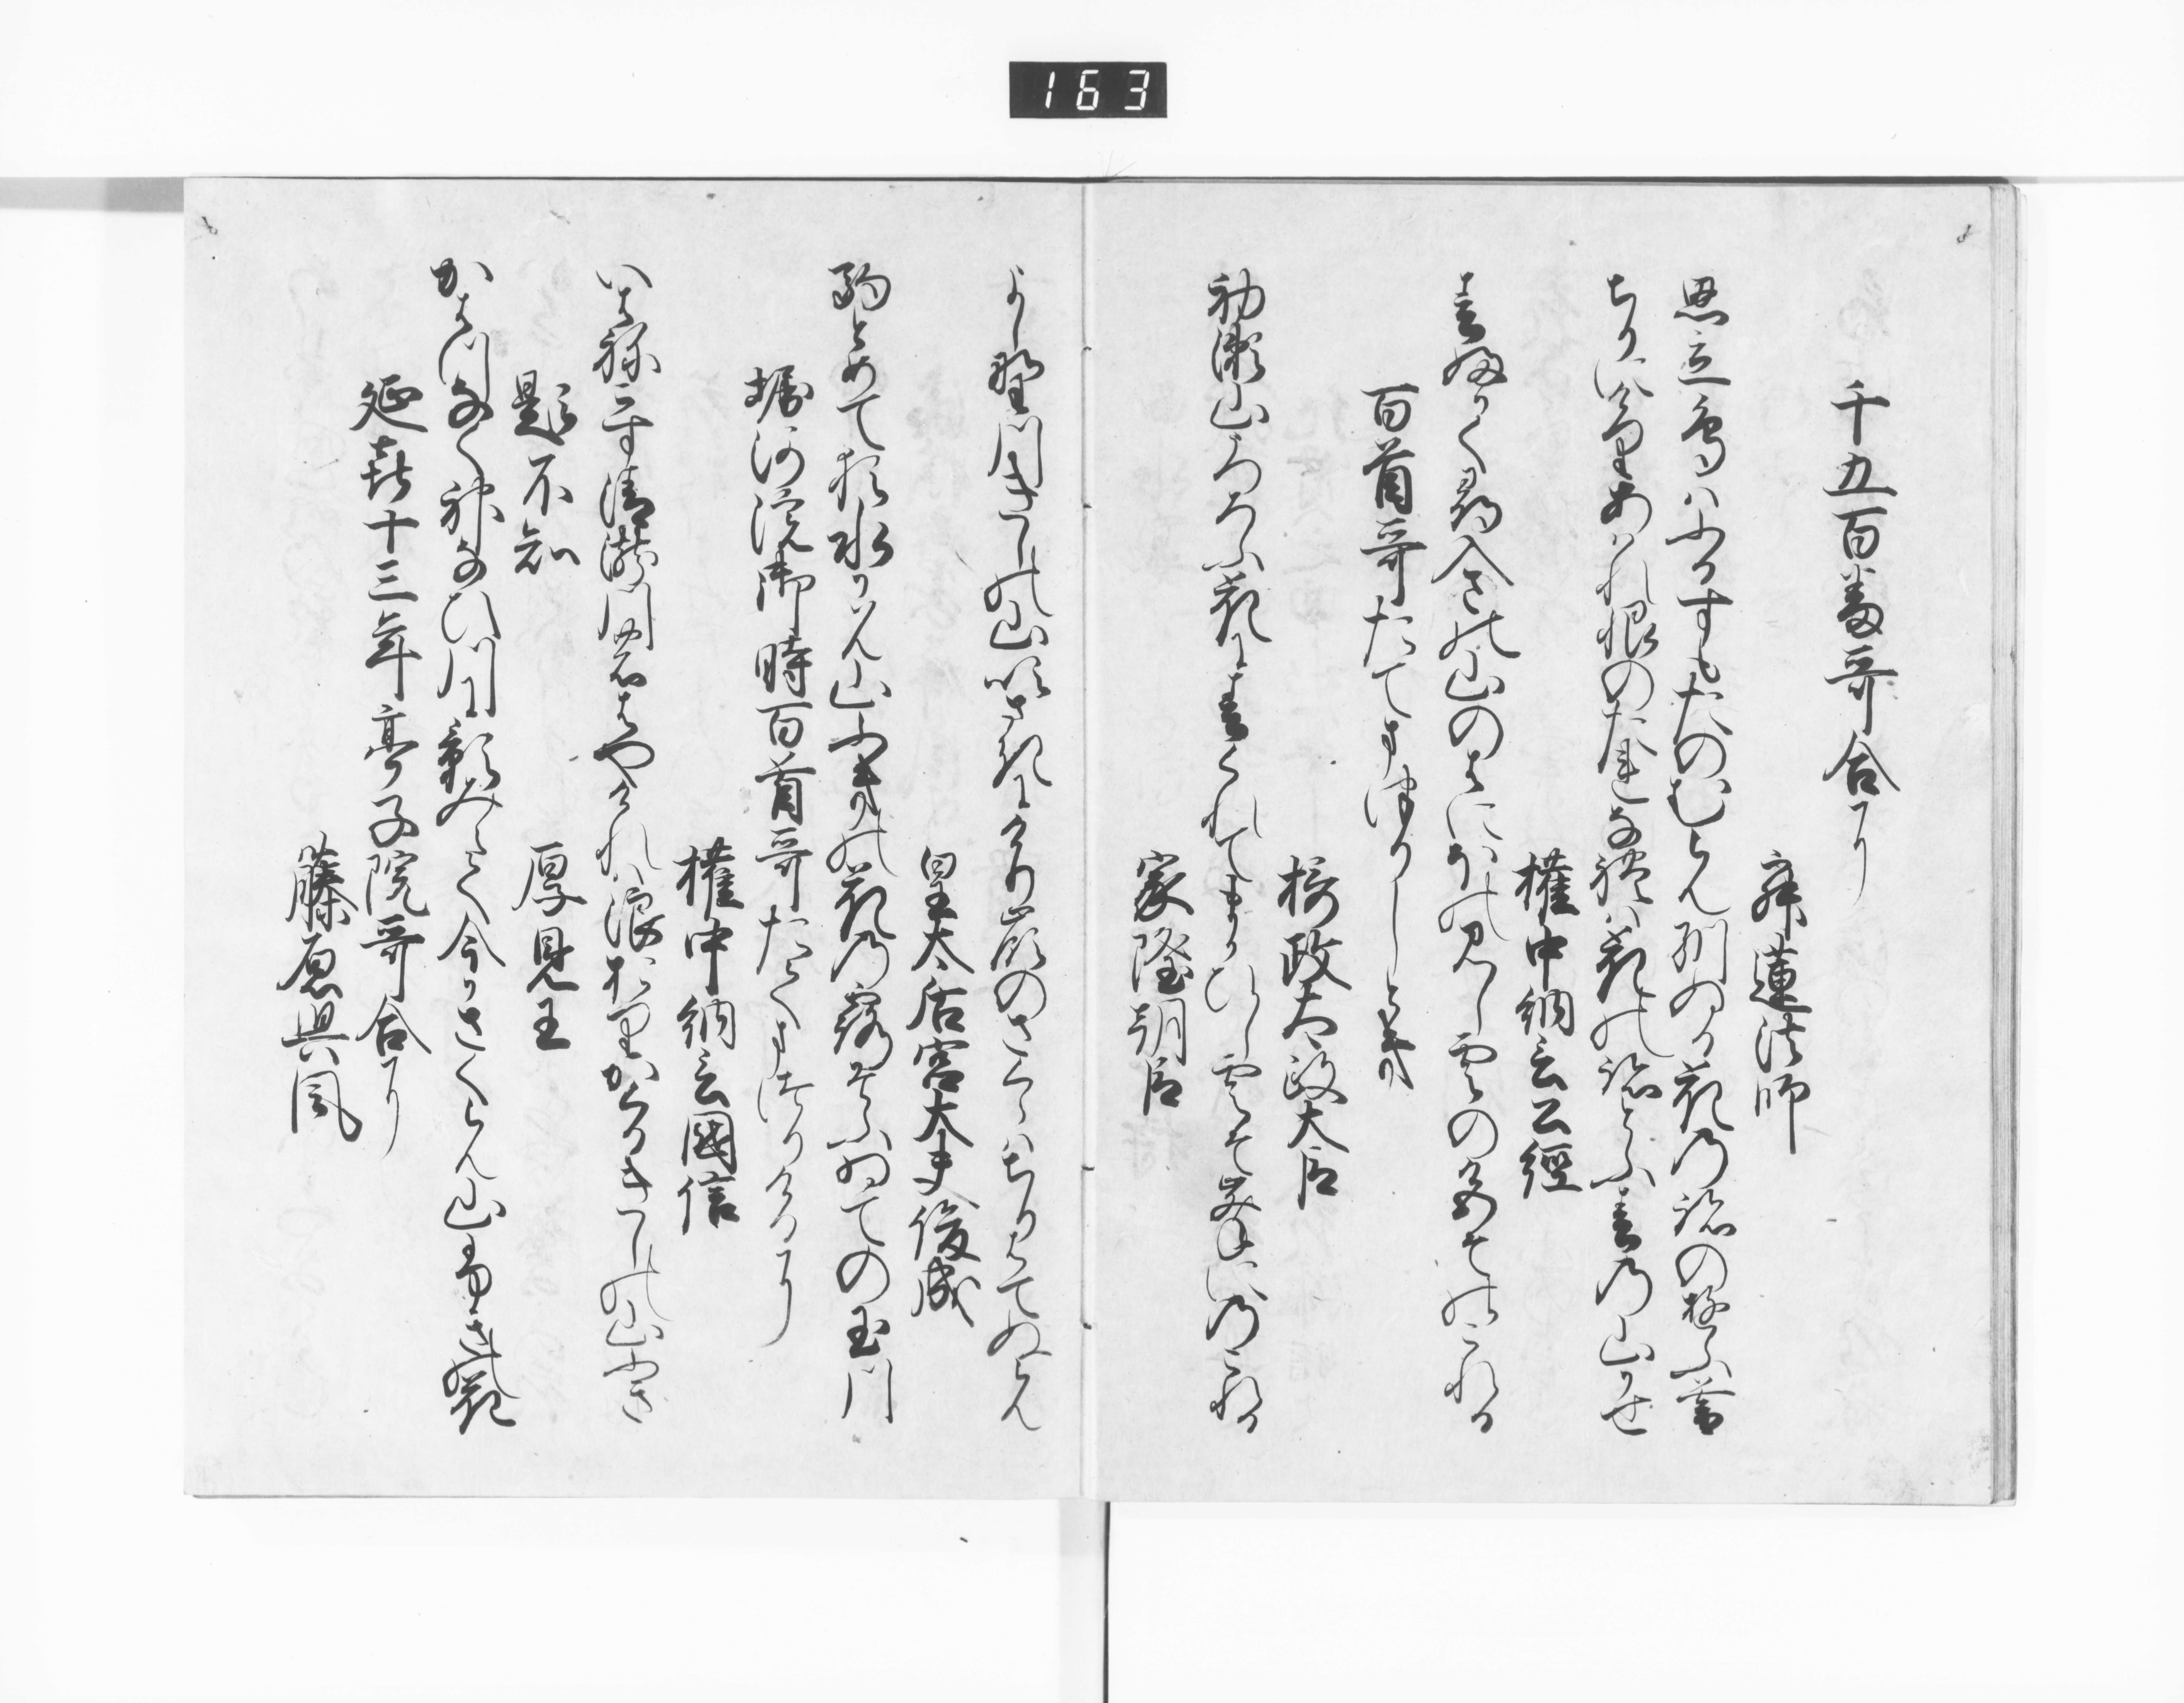 163
千五百番哥合に
寂蓮法師
思立鳥はふるすもたのむらん馴ぬる花乃跡の夕暮
ちりにけりあはれ恨のたれなれは花の跡とふ春乃山かせ
権中納言公経
春ふかく尋入さの山のはにほの見し雲の色そのこれる
百首哥たてまつりしとき
摂政太政大臣
初瀬山うつろふ花に春くれてまかひし雲そ峯にのこれる
家隆朝臣
よし野川きしの山吹さきにけり嶺のさくらはちりはてぬらん
皇太后宮大夫俊成
駒とめて猶水かはん山ふきの花乃露そふ井ての玉川
堀河院御時百首哥たてまつりけるに
権中納言國信
いはねこす清瀧川のはやけれは浪おりかくるきしの山ふき
題不知
厚見王
かはつなく神なひ川に影みえて今かさくらん山ふきの花
延喜十三年亭子院哥合に
藤原興風